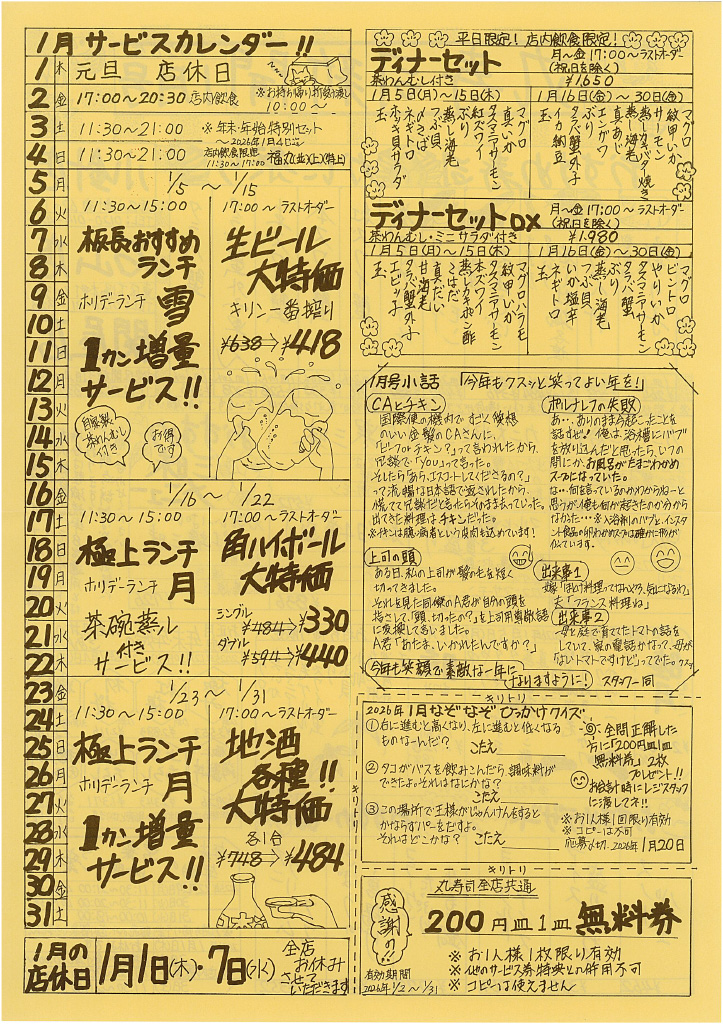 1月 サービスカレンダー!!
1 木 元旦 店休日
2 金 17:00～20:30 店内飲食 ※お持ち帰り、折詰お渡し 10:00～
3 土 11:30～21:00 ※年末・年始特別セット
～2026年1月4日迄
4 日 11:30～21:00 店内飲食限定 11:30～17:00 福丸(並)(上)(特上)
5 月
6 火
7 水
8 木
9 金
10 土
11 日
12 月
13 火
14 水
15 木
1/5 ～ 1/15
11:30～15:00
板長おすすめ
ランチ
ホリデーランチ 雪
1カン増量
サービス!!
自家製
茶わんむし
付き
お得
です
17:00～ラストオーダー
生ビール
大特価
キリン一番搾り
¥638→¥418
16 金
17 土
18 日
19 月
20 火
21 水
22 木
1/16 ～ 1/22
11:30～15:00
極上ランチ
ホリデーランチ 月
茶碗蒸し
付き
サービス!!
17:00～ラストオーダー
角ハイボール
大特価
シングル
¥484→¥330
ダブル
¥594→¥440
23 金
24 土
25 日
26 月
27 火
28 水
29 木
30 金
31 土
1/23 ～ 1/31
11:30～15:00
極上ランチ
ホリデーランチ 月
1カン増量
サービス!!
17:00～ラストオーダー
地酒
各種!!
大特価
各1合
¥748→¥484
1月の
店休日
1月1日(木)・7日(水)
全店
お休み
させて
いただきます
平日限定! 店内飲食限定!
ディナーセット
茶わんむし付き
月～金 17:00～ラストオーダー
(祝日を除く)
¥1,650
1月5日(月)～15日(木)
マグロ
真いか
タスマニアサーモン
紅ズワイ
ぶり
蒸し海老
つぶ貝
〆さば
ホッキ貝サラダ
玉
1月16日(金)～30日(金)
マグロ
紋甲いか
サーモン
蒸し海老
真あじ
エンガワ
ぶり
タラバ蟹外子
イカ納豆
玉
ディナーセットDX
茶わんむし・ミニサラダ付き
月～金 17:00～ラストオーダー
(祝日を除く)
¥1,980
1月5日(月)～15日(木)
マグロ
マグロハラモ
紋甲いか
タスマニアサーモン
本ズワイ
蒸しタキポン酢
真だい
こはだ
甘海老
タラバ蟹外子
エビっ子
玉
1月16日(金)～30日(金)
マグロ
ビントロ
やりいか
タスマニアサーモン
ぶり
蒸し海老
つぶ貝
タラバ蟹
いか塩辛
ネギトロ
玉
1月号小話 「今年もクスッと笑ってよい年を!」
CAとチキン
国際便の機内で、すごく愛想
のいい金髪のCAさんに、
「ビーフ or チキン?」って言われたから、
冗談で「YOU」って言った。
そしたら「あら、エスコートしてくださるの?」
って流暢な日本語で返されたから、
慌てて冗談だと言ったらそのまま去っていった。
出てきた料理はチキンだった。
※チキンは臆病者という皮肉も込めています!
ポルナレフの失敗
あ…ありのまま今起こったことを
話すぜ! 俺は、浴槽にバブ
を放り込んだと思ったら、いつの
間にか、お風呂がたまごわかめ
スープになっていた。
な…何を言っているのかわからねーと
思うが、俺も何が起きたのか分から
なかった…※入浴剤のバブとインスタ
ント食品の卵わかめスープは確かに形が
似ています。
上司の頭
ある日、私の上司が髪の毛を短く
切ってきました。
それを見た同僚のA君が自分の頭を
指さして、「頭、切ったの?」を上司用尊敬語
に変換して言いました。
A君「あたま、いかれたんですか?」
出来事1
嫁「ほうけ料理ってなんやろ、気になるわ?」
夫「フランス料理ね」
出来事2
母と庭で育てたトマトの話を
していて、家の電話がなって、母が
「はいトマトですけど」ってでてた。クスッ
今年も笑顔で素敵な一年に
なりますように! スタッフ一同
キリトリ
2026年1月なぞなぞひっかけクイズ
①右に進むと高くなり、左に進むと低くなる
ものなーんだ? こたえ
②タコがバスを飲みこんだら、調味料が
できたよ。それはなにかな? こたえ
③この場所で王様がじゃんけんをすると
かならずパーをだすよ。
それはどこかな? こたえ
全問正解した
方に「200円皿1皿
無料券」2枚
プレゼント!!
お会計時にレジスタッフ
に渡してネ!!
※お1人様1回限り有効
※コピーは不可
応募〆切 2026年1月20日
キリトリ
キリトリ
感謝の!!
丸寿司全店共通
200円皿1皿 無料券
※お1人様1枚限り有効
※他のサービス券特典との併用不可
※コピーは使えません
有効期間
2026年1/2～1/31